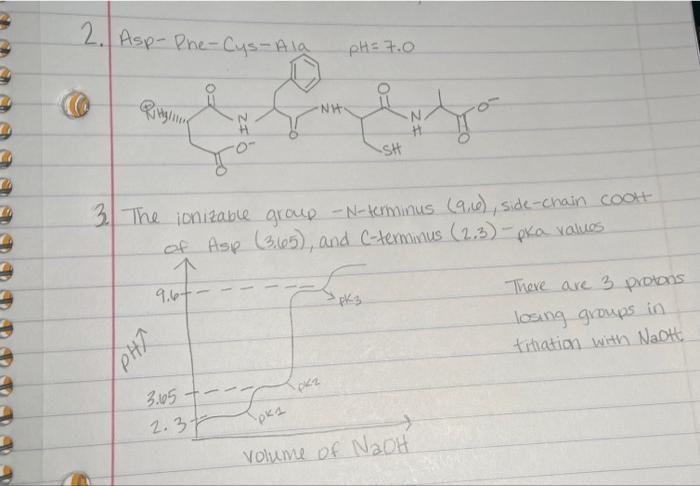 2. Asp-Phe-Cys-Ala pH=7.0
O
O
⊕NH3
N
H
NH
N
H
O⁻
O⁻
O
O
O
SH
3. The ionizable group -N-terminus (9.6), side-chain COOH
of Asp (3.65), and C-terminus (2.3) - pKa values
9.6
pK3
There are 3 protons
losing groups in
titration with NaOH
pH↑
3.65
pK2
2.3
pK1
volume of NaOH